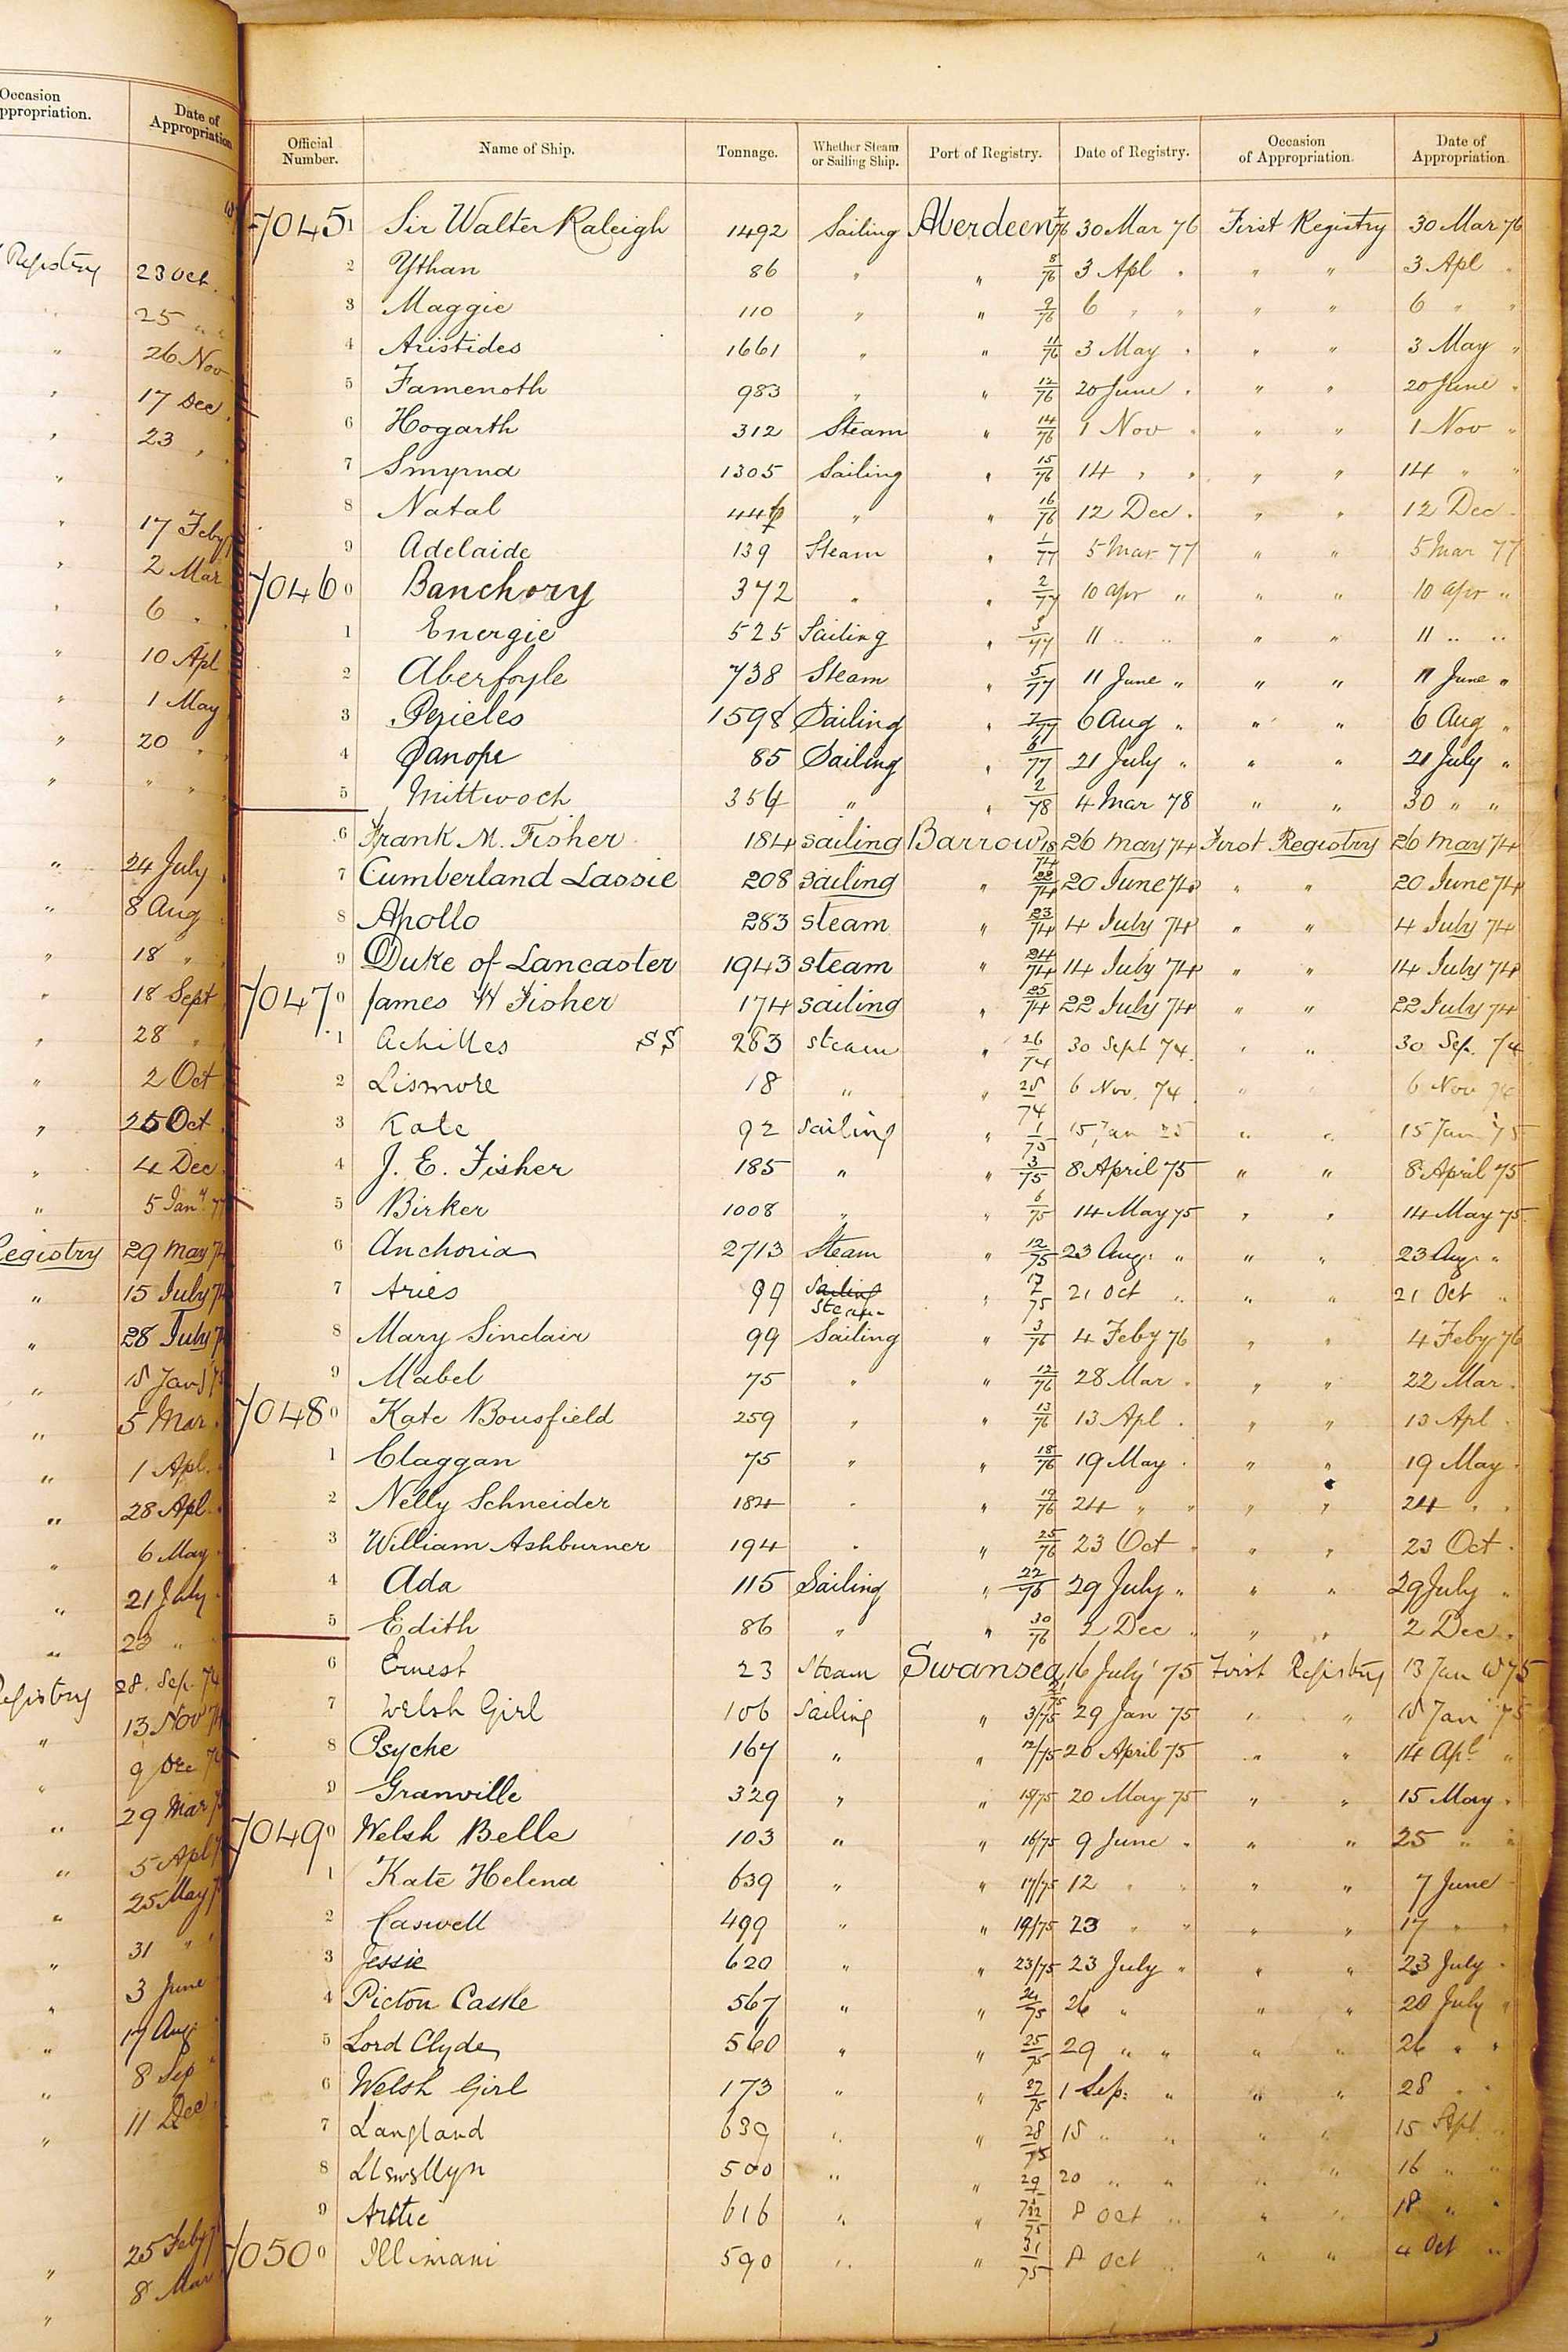 Occasion
ppropriation.
Date of
Appropriation
Registry 23 Oct.
" 25 " "
" 26 Nov
" 17 Dec
" 23 "
"
" 17 Feby
" 2 Mar
" 6 "
" 10 Apl
" 1 May
" 20 "
" " "
" 24 July
" 8 Aug
" 18 "
" 18 Sept
" 28 "
" 2 Oct
" 25 Oct
" 4 Dec
" 5 Jany 77
Registry 29 May 74
" 15 July 74
" 28 July
" 18 Jany 75
" 5 Mar
" 1 Apl.
" 28 Apl.
" 6 May
" 21 July
" 23 "
Registry 28. Sep. 74
" 13 Nov 74
" 9 Dec 74
" 29 Mar
" 5 Apl
" 25 May
" 31 " "
" 3 June
" 17 Aug
" 8 Sep
" 11 Dec
" 25 Feby
" 8 Mar
Official Number. Name of Ship. Tonnage. Whether Steam or Sailing Ship. Port of Registry. Date of Registry. Occasion of Appropriation. Date of Appropriation.
70451 Sir Walter Raleigh 1492 Sailing Aberdeen 7/76 30 Mar 76 First Registry 30 Mar 76
2 Ythan 86 " " 8/76 3 Apl " " " 3 Apl "
3 Maggie 110 " " 9/76 6 " " " " 6 " "
4 Aristides 1661 " " 11/76 3 May " " " 3 May "
5 Famenoth 983 " " 12/76 20 June " " " 20 June "
6 Hogarth 312 Steam " 14/76 1 Nov " " " 1 Nov "
7 Smyrna 1305 Sailing " 15/76 14 " " " " 14 " "
8 Natal " " 16/76 12 Dec " " " 12 Dec "
9 Adelaide 139 Steam " 1/77 5 Mar 77 " " 5 Mar 77
70460 Banchory 372 " " 2/77 10 Apr " " " 10 Apr "
1 Energie 525 Sailing " 3/77 11 " " " " 11 " "
2 Aberfoyle 738 Steam " 5/77 11 June " " " 11 June "
3 Pericles 1598 Sailing " 7/77 6 Aug " " " 6 Aug "
4 Panope 85 Sailing " 6/77 21 July " " " 21 July "
5 Mittwoch 354 " " 2/78 4 Mar 78 " " 30 " "
6 Frank M. Fisher 184 sailing Barrow 18/74 26 May 74 First Registry 26 May 74
7 Cumberland Lassie 208 sailing " 22/74 20 June 74 " " 20 June 74
8 Apollo 283 steam " 23/74 4 July 74 " " 4 July 74
9 Duke of Lancaster 1943 steam " 24/74 14 July 74 " " 14 July 74
70470 James W Fisher 174 sailing " 25/74 22 July 74 " " 22 July 74
1 Achilles SS 263 steam " 26/74 30 Sept 74 " " 30 Sep. 74
2 Lismore 18 " " 28/74 6 Nov. 74 " " 6 Nov 74
3 Kate 92 sailing " 1/75 15 Jan 75 " " 15 Jan 75
4 J. E. Fisher 185 " " 3/75 8 April 75 " " 8 April 75
5 Birker 1008 " " 6/75 14 May 75 " " 14 May 75
6 Anchoria 2713 Steam " 12/75 23 Aug " " " 23 Aug "
7 Aries 99 Sailing Steam " 17/75 21 Oct " " " 21 Oct "
8 Mary Sinclair 99 Sailing " 3/76 4 Feby 76 " " 4 Feby 76
9 Mabel 75 " " 12/76 28 Mar " " " 22 Mar "
70480 Kate Bousfield 259 " " 13/76 13 Apl " " " 13 Apl "
1 Claggan 75 " " 18/76 19 May " " " 19 May "
2 Nelly Schneider 184 " " 19/76 24 " " " " 24 " "
3 William Ashburner 194 " " 25/76 23 Oct " " " 23 Oct "
4 Ada 115 Sailing " 22/76 29 July " " " 29 July "
5 Edith 86 " " 30/76 2 Dec " " " 2 Dec "
6 Ernest 23 Steam Swansea 21/75 16 July 75 First Registry 13 Jan 75
7 Welsh Girl 106 Sailing " 3/75 29 Jan 75 " " 18 Jan 75
8 Psyche 167 " " 12/75 20 April 75 " " 14 Apl "
9 Granville 329 " " 14/75 20 May 75 " " 15 May "
70490 Welsh Belle 103 " " 16/75 9 June " " " 25 " "
1 Kate Helena 639 " " 17/75 12 " " " " 7 June
2 Caswell 499 " " 19/75 23 " " " " 17 " "
3 Jessie 620 " " 23/75 23 July " " " 23 July "
4 Picton Castle 567 " " 24/75 26 " " " 20 July "
5 Lord Clyde 560 " " 25/75 29 " " " " 26 " "
6 Welsh Girl 173 " " 27/75 1 Sep: " " " 28 " "
7 Langland 639 " " 28/75 18 " " " " 15 Sept "
8 Llewellyn 500 " " 29 20 " " " " 16 " "
9 Arctic 616 " " 8 Oct " " " 18 " "
70500 Illimani 590 " " 31/75 8 Oct " " " 4 Oct "